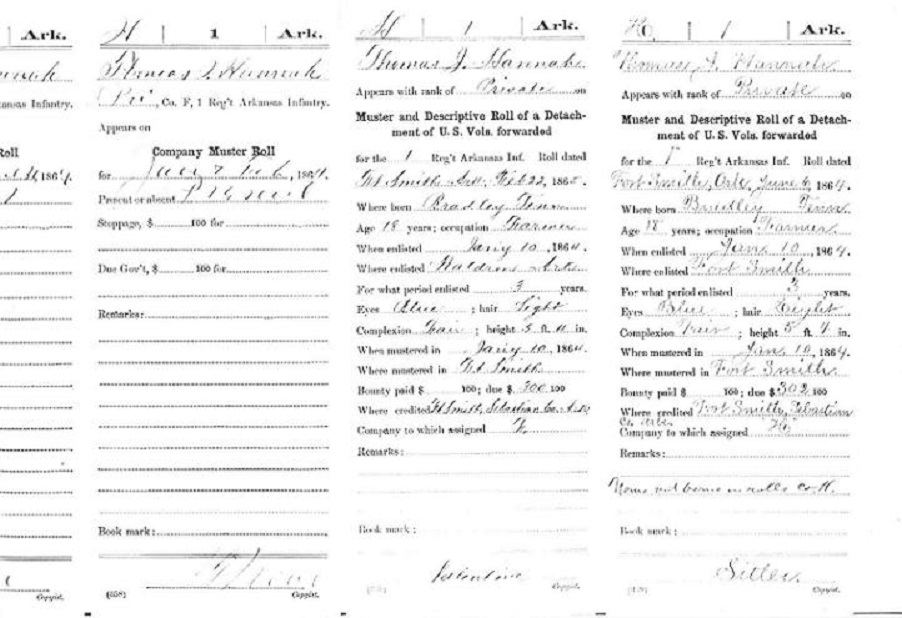 Ark.
Infantry.
Roll
186
H | 1 | Ark.
Hannah
Co. F, 1 Reg't Arkansas Infantry.
Appears on
Company Muster Roll
for 186
Present or absent Present
Stoppage, $ 100 for
Due Gov't, $ 100 for
Remarks:
Book mark:
(358)
Copyist.
H | 1 | Ark.
Thomas J. Hannah
Appears with rank of Private on
Muster and Descriptive Roll of a Detach-
ment of U.S. Vols. forwarded
for the 1 Reg't Arkansas Inf. Roll dated
Ft Smith Ark. Feb 22, 186
Where born Bradley Tenn
Age 18 years; occupation Farmer
When enlisted Jany 10, 1864.
Where enlisted Waldron Ark
For what period enlisted 3 years.
Eyes Blue; hair Light
Complexion Fair; height 5 ft. in.
When mustered in Jany 10, 1864.
Where mustered in Ft Smith
Bounty paid $ 100; due $ 300 100
Where credited Ft Smith, Sebastian Co. Ark
Company to which assigned
Remarks:
Book mark:
Valentine
Copyist.
H | 1 | Ark.
Thomas J. Hannah
Appears with rank of Private on
Muster and Descriptive Roll of a Detach-
ment of U.S. Vols. forwarded
for the 1 Reg't Arkansas Inf. Roll dated
Fort Smith, Ark. June 6, 1864.
Where born Bradley Tenn
Age 18 years; occupation Farmer
When enlisted Jany 10, 1864.
Where enlisted Fort Smith
For what period enlisted 3 years.
Eyes Blue; hair Light
Complexion Fair; height 5 ft. in.
When mustered in Jan. 10, 1864.
Where mustered in Fort Smith
Bounty paid $ 100; due $ 302 100
Where credited Fort Smith, Sebastian
Co. Ark
Company to which assigned
Remarks:
Name not borne on rolls Co. H.
Book mark:
Sitler
Copyist.